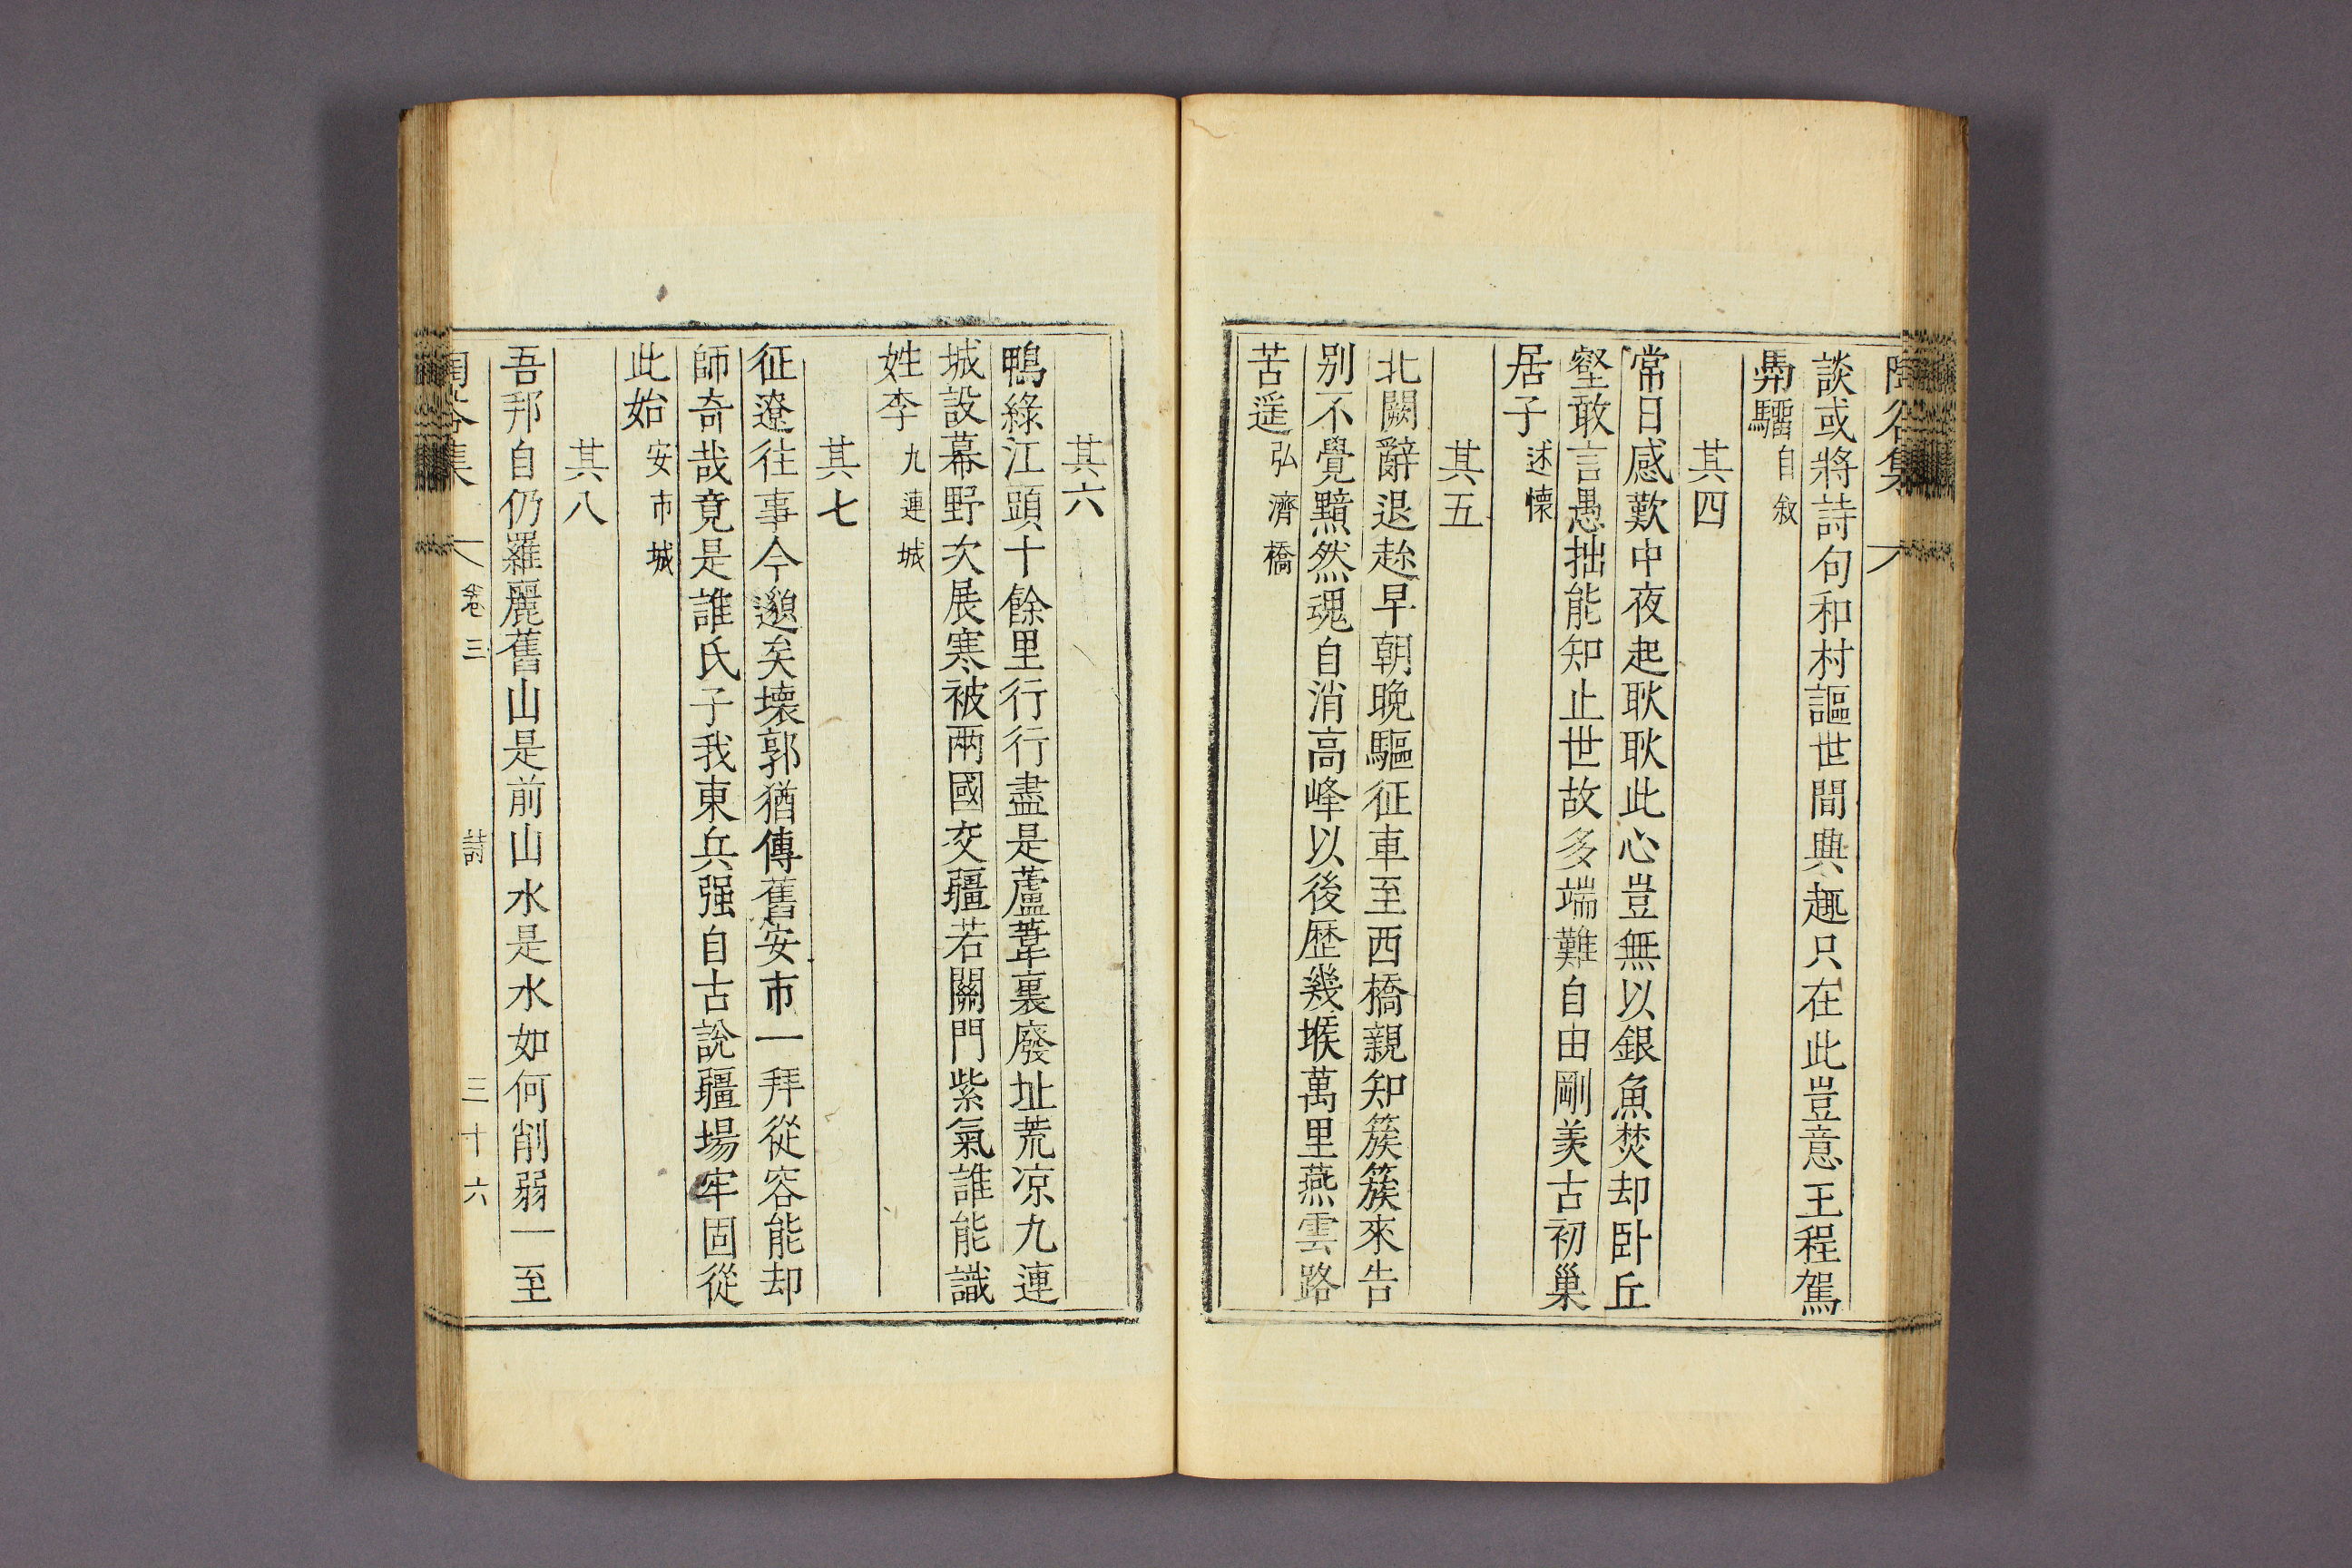 談或將詩句和村謳世間典趣只在此豈意王程駕
驂騮自敘
其四
常日感歎中夜起耿耿此心豈無以銀魚焚却臥丘
壑敢言愚拙能知止世故多端難自由剛羨古初巢
居子述懷
其五
北闕辭退趂早朝晚驅征車至西橋親知簇簇來告
別不覺黯然魂自消高峰以後歷幾堠萬里燕雲路
苦遥弘濟橋
其六
鴨綠江頭十餘里行行盡是蘆葦裏廢址荒凉九連
城設幕野次展寒被兩國交疆若關門紫氣誰能識
姓李九連城
其七
征遼往事今邈矣壞郭猶傳舊安市一拜從容能却
師奇哉竟是誰氏子我東兵强自古說疆場牢固從
此始安市城
其八
吾邦自仍羅麗舊山是前山水是水如何削弱一至
卷三 詩 三十六